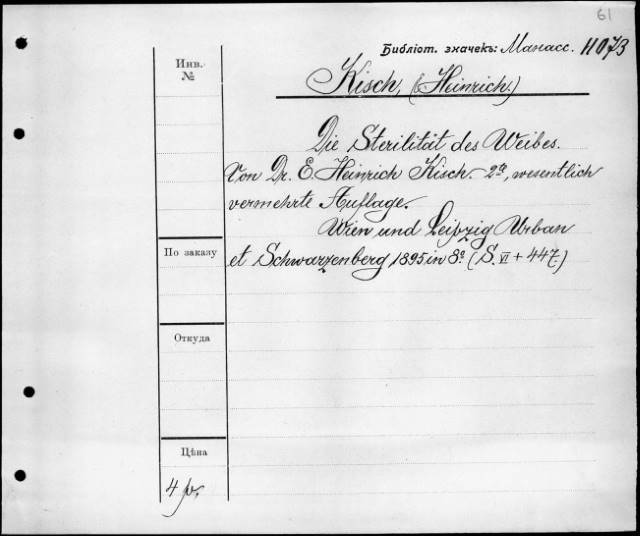 61
Библіот. значекъ: Манасс. 11073
Инв. №
Kisch, (Heinrich.)
Die Sterilität des Weibes.
Von Dr. E. Heinrich Kisch. 2te, wesentlich
vermehrte Auflage.
Wien und Leipzig Urban
et Schwarzenberg 1895 in 8º (S. VI + 447.)
По заказу
Откуда
Цѣна
4 р.